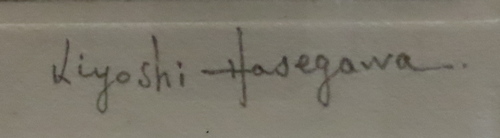 Kiyoshi Hasegawa